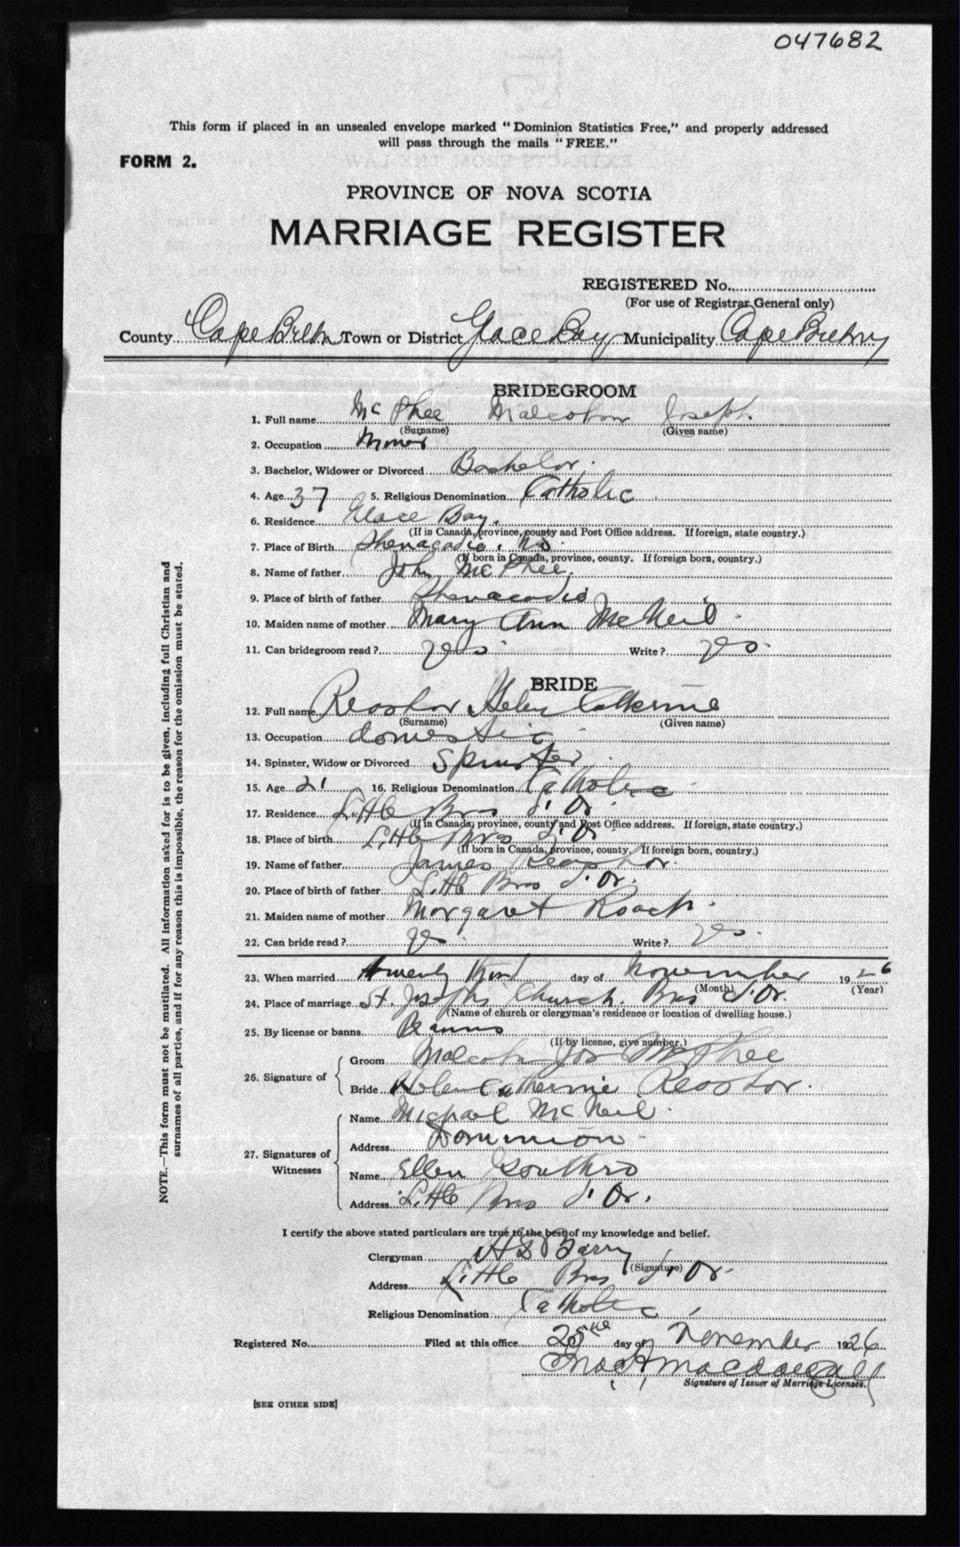 047682
This form if placed in an unsealed envelope marked "Dominion Statistics Free," and properly addressed
will pass through the mails "FREE."
FORM 2.
PROVINCE OF NOVA SCOTIA
MARRIAGE REGISTER
REGISTERED No.
(For use of Registrar General only)
County Cape Breton Town or District Glace Bay Municipality Cape Breton
BRIDEGROOM
1. Full name Mc Phee Malcolm Joseph
(Surname) (Given name)
2. Occupation Miner
3. Bachelor, Widower or Divorced Bachelor.
4. Age 37 5. Religious Denomination Catholic
6. Residence Glace Bay.
(If in Canada, province, county and Post Office address. If foreign, state country.)
7. Place of Birth Shenacadie, NS
(If born in Canada, province, county. If foreign born, country.)
8. Name of father John McPhee.
9. Place of birth of father Shenacadie
10. Maiden name of mother Mary Ann McNeil.
11. Can bridegroom read? yes. Write? yes.
BRIDE
12. Full name Reoshor Helen Catherine
(Surname) (Given name)
13. Occupation domestic
14. Spinster, Widow or Divorced Spinster.
15. Age 21 16. Religious Denomination Catholic
17. Residence Little Bras d'Or
(If in Canada, province, county and Post Office address. If foreign, state country.)
18. Place of birth Little Bras d'Or
(If born in Canada, province, county. If foreign born, country.)
19. Name of father James Reoshor.
20. Place of birth of father Little Bras d'Or.
21. Maiden name of mother Morgaret Roach.
22. Can bride read? yes. Write? yes.
23. When married twenty third day of November 1926
(Month) (Year)
24. Place of marriage St. Josephs Church. Bras d'Or.
(Name of church or clergyman's residence or location of dwelling house.)
25. By license or banns Banns
(If by license, give number.)
26. Signature of
Groom Malcolm Jos McPhee
Bride Helen Catherine Reoshor.
27. Signatures of Witnesses
Name Michael McNeil.
Address Dominion.
Name Ellen Southro
Address Little Bras d'Or.
I certify the above stated particulars are true to the best of my knowledge and belief.
Clergyman Barry
(Signature)
Address Little Bras d'Or.
Religious Denomination Catholic
Registered No. Filed at this office 25 day of November 1926
Macdougall
Signature of Issuer of Marriage Licenses.
[SEE OTHER SIDE]
NOTE.—This form must not be mutilated. All information asked for is to be given, including full Christian and
surnames of all parties, and if for any reason this is impossible, the reason for the omission must be stated.